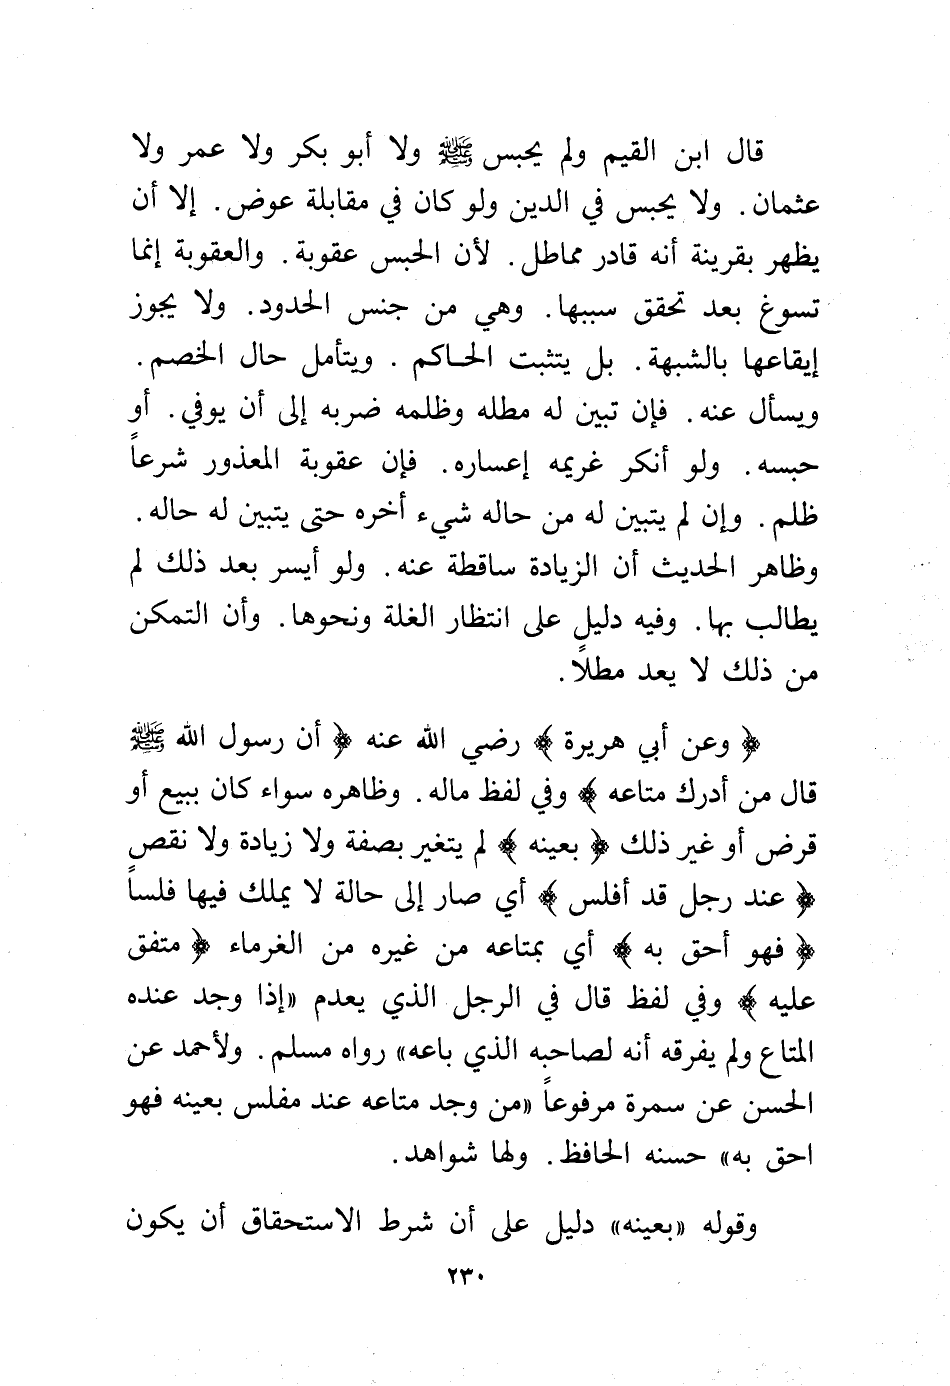 قال ابن القيم ولم يحبس ﷺ ولا أبو بكر ولا عمر ولا
عثمان. ولا يحبس في الدين ولو كان في مقابلة عوض. إلا أن
يظهر بقرينة أنه قادر مماطل. لأن الحبس عقوبة. والعقوبة إنما
تسوغ بعد تحقق سببها. وهي من جنس الحدود. ولا يجوز
إيقاعها بالشبهة. بل يتثبت الحاكم. ويتأمل حال الخصم.
ويسأل عنه. فإن تبين له مطله وظلمه ضربه إلى أن يوفي. أو
حبسه. ولو أنكر غريمه إعساره. فإن عقوبة المعذور شرعاً
ظلم. وإن لم يتبين له من حاله شيء أخره حتى يتبين له حاله.
وظاهر الحديث أن الزيادة ساقطة عنه. ولو أيسر بعد ذلك لم
يطالب بها. وفيه دليل على انتظار الغلة ونحوها. وأن التمكن
من ذلك لا يعد مطلاً.
﴿ وعن أبي هريرة ﴾ رضي الله عنه ﴿ أن رسول الله ﷺ
قال من أدرك متاعه ﴾ وفي لفظ ماله. وظاهره سواء كان ببيع أو
قرض أو غير ذلك ﴿ بعينه ﴾ لم يتغير بصفة ولا زيادة ولا نقص
﴿ عند رجل قد أفلس ﴾ أي صار إلى حالة لا يملك فيها فلساً
﴿ فهو أحق به ﴾ أي بمتاعه من غيره من الغرماء ﴿ متفق
عليه ﴾ وفي لفظ قال في الرجل الذي يعدم «إذا وجد عنده
المتاع ولم يفرقه أنه لصاحبه الذي باعه» رواه مسلم. ولأحمد عن
الحسن عن سمرة مرفوعاً «من وجد متاعه عند مفلس بعينه فهو
احق به» حسنه الحافظ. ولها شواهد.
وقوله «بعينه» دليل على أن شرط الاستحقاق أن يكون
٢٣٠